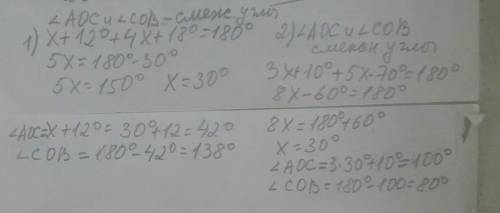 ∠AOC и ∠COB – смеж углы
1) x+12°+4x+18°=180°
5x=180°-30°
5x=150° x=30°
∠AOC=x+12°=30°+12=42°
∠COB=180°-42°=138°
2) ∠AOC и ∠COB
смежн углы
3x+10°+5x-70°=180°
8x-60°=180°
8x=180°+60°
x=30°
∠AOC=3·30°+10°=100°
∠COB=180°-100=80°